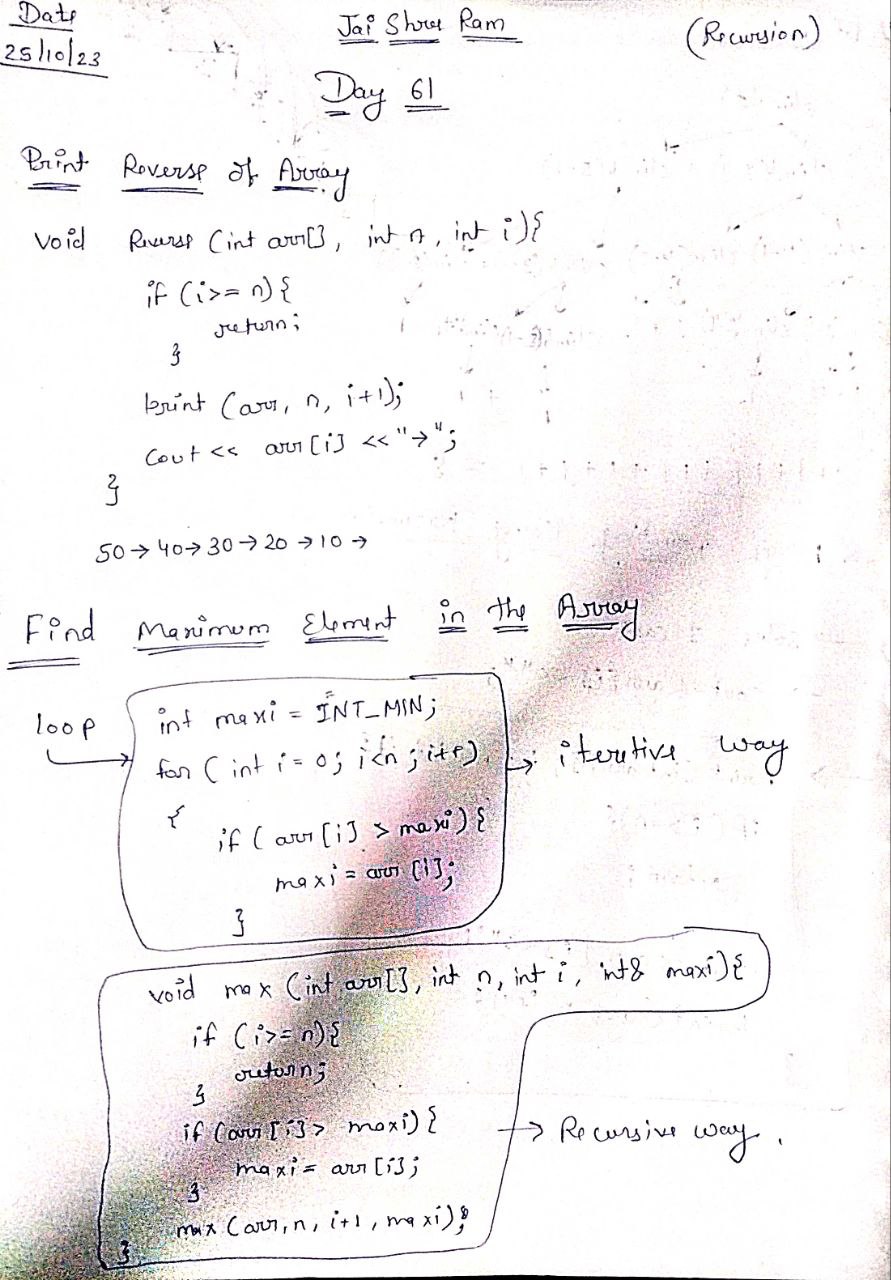 Date
25/10/23
Jai Shree Ram
(Recursion)
Day 61
Print Reverse of Array
void Reverse (int arr[], int n, int i){
if (i>= n) {
return;
}
print (arr, n, i+1);
cout << arr [i] << "→";
}
50 → 40 → 30 → 20 → 10 →
Find Maximum Element in the Array
loop
int maxi = INT_MIN;
for ( int i = 0; i<n ; i++)
→ iterative way
{
if ( arr [i] > maxi) {
maxi = arr [i];
}
void max (int arr[], int n, int i, int& maxi) {
if (i>= n) {
return;
}
if (arr [i] > maxi) {
→ Recursive way.
maxi = arr [i];
}
max (arr, n, i+1, maxi);
}